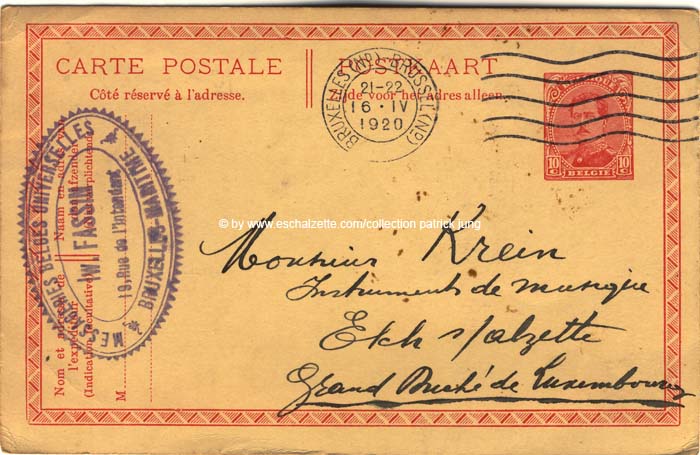 CARTE POSTALE
POSTKAART
Côté réservé à l'adresse.
Zijde voor het adres alleen.
BRUXELLES (NP) BRUSSEL (NP)
21-22
16·IV
1920
BELGIQUE
10 C
10 C
BELGIE
MESSAGERIES BELGES UNIVERSELLES
BRUXELLES-MARITIME
W. FASBIN
19, Rue de l'Intendant
Naam en adres van
den afzender
Nom et adresse de
l'expéditeur
(Indication facultative)
M
© by www.eschalzette.com/collection patrick jung
Monsieur Krein
Instruments de musique
Esch s/alzette
Grand Duché de Luxembourg